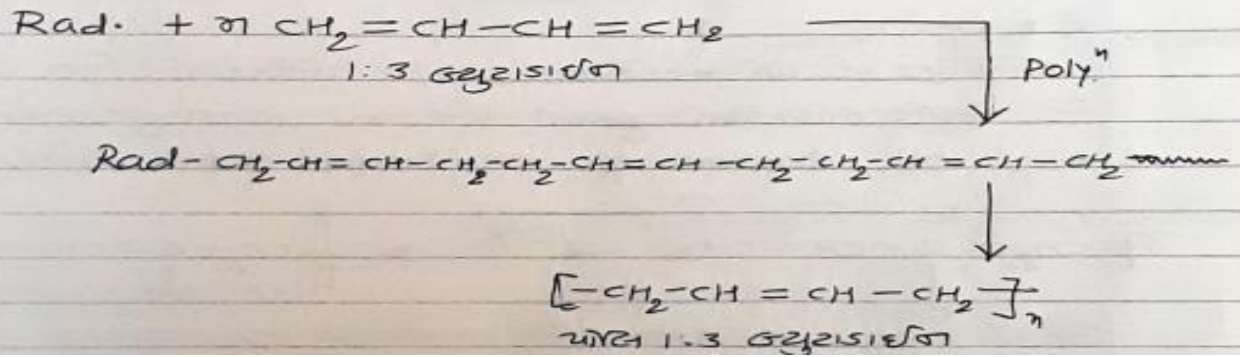 Rad. + n CH₂ = CH – CH = CH₂
1:3 બ્યુટાડાઈન
Polyⁿ
Rad – CH₂–CH = CH – CH₂–CH₂–CH = CH – CH₂– CH₂–CH = CH – CH₂
[–CH₂–CH = CH – CH₂–]ₙ
પોલિ 1.3 બ્યુટાડાઈન